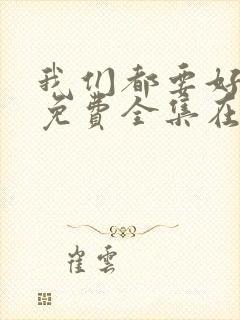 我们都要好
免费全集在
崔雲